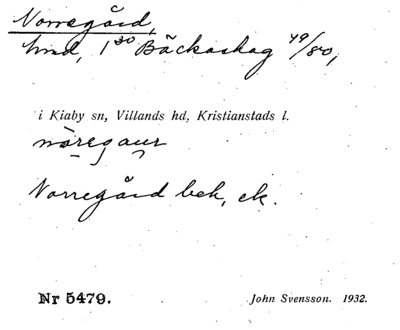 Norregård,
hmd, 1 30 Bäckaskog 49/80,
i Kiaby sn, Villands hd, Kristianstads l.
nǫregaur
Norregård bek, ek.
Nr 5479.
John Svensson. 1932.